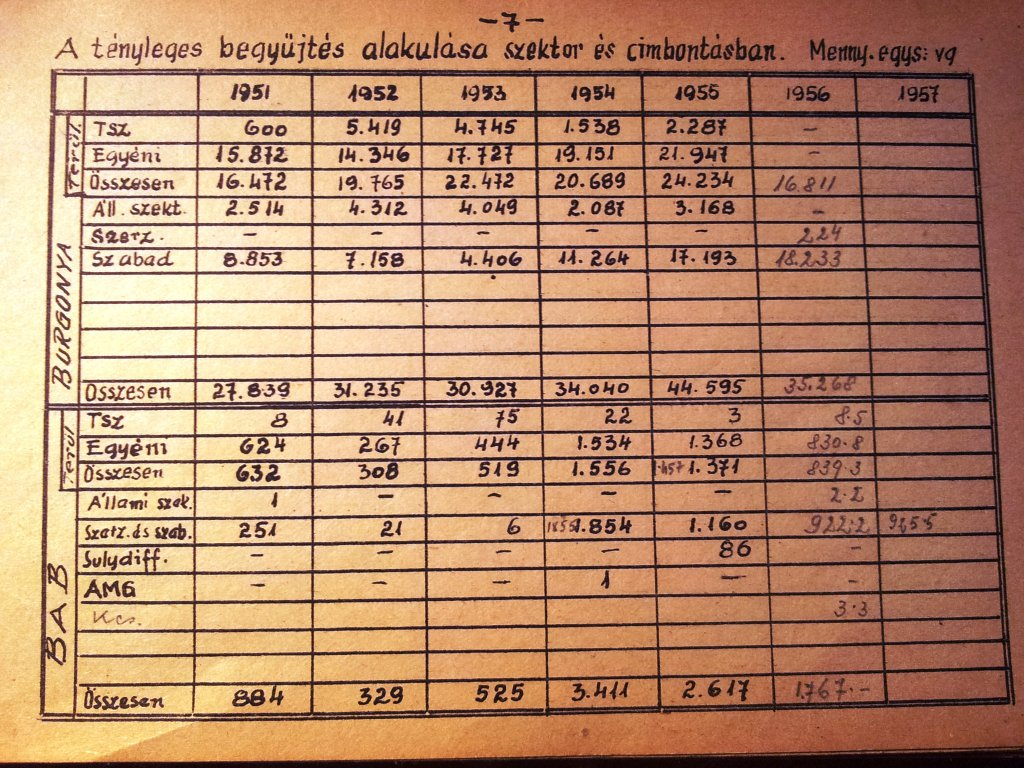 —7—
A tényleges begyüjtés alakulása szektor és cimbontásban. Menny. egys: vg
1951 1952 1953 1954 1955 1956 1957
BURGONYA
Terül.
Tsz 600 5.419 4.745 1.538 2.287 —
Egyéni 15.872 14.346 17.727 19.151 21.947 —
Összesen 16.472 19.765 22.472 20.689 24.234 16.811
Áll. szekt. 2.514 4.312 4.049 2.087 3.168 —
Szerz. — — — — — 224
Szabad 8.853 7.158 4.406 11.264 17.193 18.233
Összesen 27.839 31.235 30.927 34.040 44.595 35.268
BAB
Terül
Tsz 8 41 75 22 3 8.5
Egyéni 624 267 444 1.534 1.368 830.8
Összesen 632 308 519 1.556 1.457 1.371 839.3
Állami szek. 1 — — — — 2.2
Szerz. és szab. 251 21 6 1.854 1.160 922.2 965.5
Sulydiff. — — — — 86 —
AMG — — — 1 — —
Kcs. 3.3
Összesen 884 329 525 3.411 2.617 1.767.—